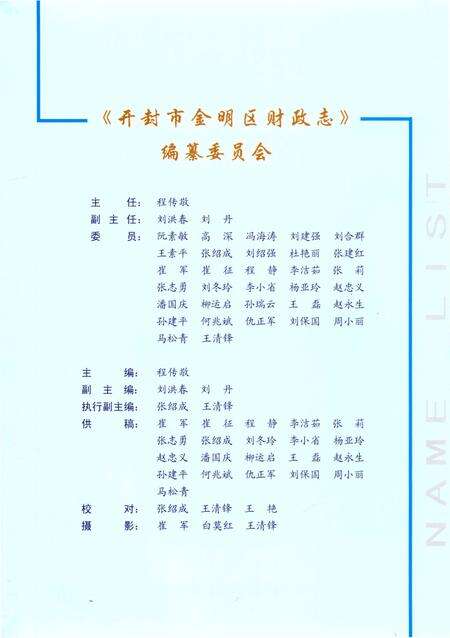 《开封市金明区财政志》
编纂委员会
主　　任：程传敬
副 主 任：刘洪春　刘　丹
委　　员：阮素敏　高　深　冯海涛　刘建强　刘合群
王素平　张绍成　刘绍强　杜艳丽　张建红
崔　军　崔　征　程　静　李洁茹　张　莉
张志勇　刘冬玲　李小省　杨亚玲　赵忠义
潘国庆　柳运启　孙瑞云　王　磊　赵永生
孙建平　何兆斌　仇正军　刘保国　周小丽
马松青　王清锋
主　　编：程传敬
副 主 编：刘洪春　刘　丹
执行副主编：张绍成　王清锋
供　　稿：崔　军　崔　征　程　静　李洁茹　张　莉
张志勇　张绍成　刘冬玲　李小省　杨亚玲
赵忠义　潘国庆　柳运启　王　磊　赵永生
孙建平　何兆斌　仇正军　刘保国　周小丽
马松青
校　　对：张绍成　王清锋　王　艳
摄　　影：崔　军　白莫红　王清锋
NAME LIST